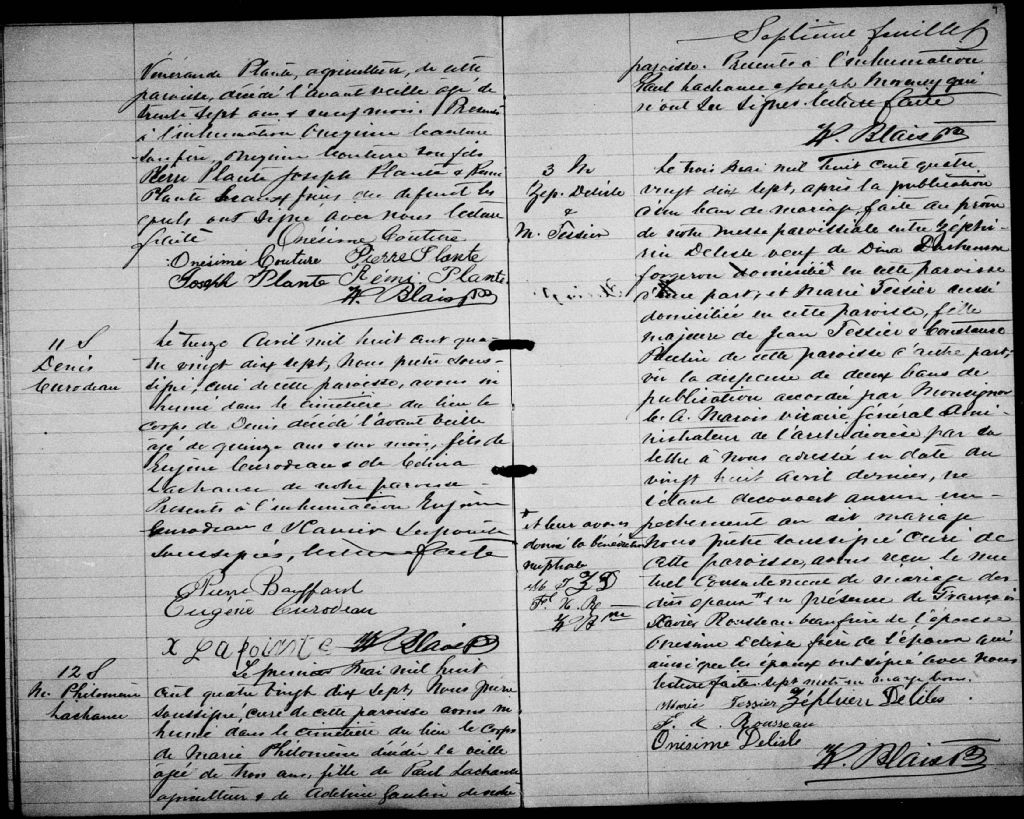 Vénérande Plante, agriculteur, de cette
paroisse, décédé l'avant veille agé de
trente sept ans & neuf mois. Présents
à l'inhumation Onezime Couture
son père, Onezime Couture son fils
Pierre Plante Joseph Plante & Remi
Plante beaux frères du defunt les
quels ont signé avec nous lecture
faite Onésime Couture
Onesime Couture Pierre Plante
Joseph Plante Rémi Plante
W. Blais Ptre
11 S
Denis
Curodeau
Le treize Avril mil huit cent qua
tre vingt dix sept, Nous prêtre sous-
signé, curé de cette paroisse, avons in
humé dans le cimetière du lieu le
corps de Denis décédé l'avant veille
agé de quinze ans & un mois, fils de
Eugène Curodeau & de Célina
Lachance de notre paroisse
Présents à l'inhumation Eugène
Curodeau & Xavier Lapointe
soussignés, lecture faite
Pierre Bouffard
Eugène Curodeau
X Lapointe W Blais Ptre
12 S
M. Philomène
Lachance
Le premier Mai mil huit
cent quatre vingt dix sept, Nous prêtre
soussigné, curé de cette paroisse avons in
humé dans le cimetière du lieu le corps
de Marie Philomène décédée la veille
agée de trois ans, fille de Paul Lachance
agriculteur & de Adeline Gaulin de notre
Septième feuillet
paroisse. Présents à l'inhumation
Paul Lachance & Joseph qui
n'ont su signer lecture faite
W. Blais Ptre
3 M
Zep. Delisle
&
M. Tessier
Le trois Mai mil huit cent quatre
vingt dix sept, après la publication
d'un ban de mariage, faite au prône
de notre messe paroissiale entre Zéphi-
rin Delisle veuf de Dina Duchesne
forgeron domicilié en cette paroisse
d'une part, et Marie Tessier aussi
domiciliée en cette paroisse, fille
majeure de Jean Tessier & Constance
de cette paroisse d'autre part,
vu la dispense de deux bans de
publication accordée par Monseignor
C. A. Marois vicaire général Admi
nistrateur de l'archidiocèse par sa
lettre à nous adressée en date du
vingt huit avril dernier, ne
s'étant découvert aucun em-
pêchement au dit mariage
Nous prêtre soussigné curé de
cette paroisse, avons reçu le mu
tuel consentement de mariage des
dits époux * en présence de François
Xavier Rousseau beaufrère de l'épouse
Onesime Delisle frère de l'époux qui
ainsi que les époux ont signé avec nous
lecture faite sept mots en marge bons.
* et leur avons
donné la bénédiction
nuptiale
M. T. Z D
F. X. R.
W B Ptre
Marie Tessier Zéphirin Deliles
F. X. Rousseau
Onésime Delisle
W. Blais Ptre